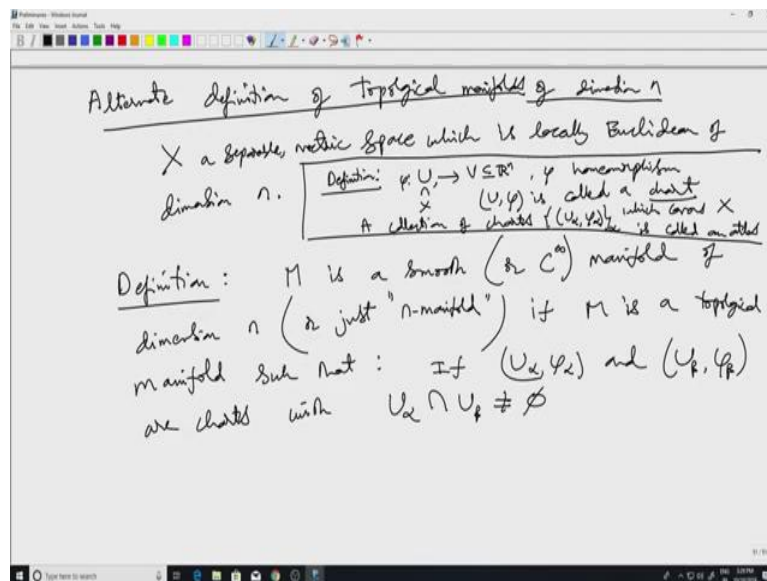 Preliminaries - Windows Journal
File Edit View Insert Actions Tools Help
Alternate definition of topological manifolds of dimension n
X a separable, metric space which is locally Euclidean of
dimension n.
Definition: φ: U → V ⊆ ℝⁿ, φ homeomorphism
∩
X (U, φ) is called a chart
A collection of charts {(Uα, φα)}α which covers X
is called an atlas
Definition: M is a smooth (or C^∞) manifold of
dimension n (or just "n-manifold") if M is a topological
manifold such that: If (Uα, φα) and (Uβ, φβ)
are charts with Uα ∩ Uβ ≠ ∅
Type here to search
ENG